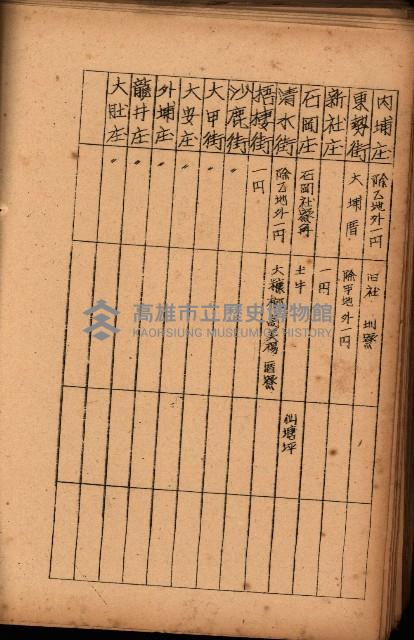 內埔庄 除乙地外一円 旧社 圳寮
東勢街 大埔厝 除甲地外一円
新社庄 一円
石岡庄 石岡 土牛
清水街 除乙地外一円 大 高美 楊厝寮 仙塘坪
梧棲街 一円
沙鹿街 〃
大甲街 〃
大安庄 〃
外埔庄 〃
龍井庄 〃
大肚庄 〃
高雄市立歷史博物館
KAOHSIUNG MUSEUM OF HISTORY